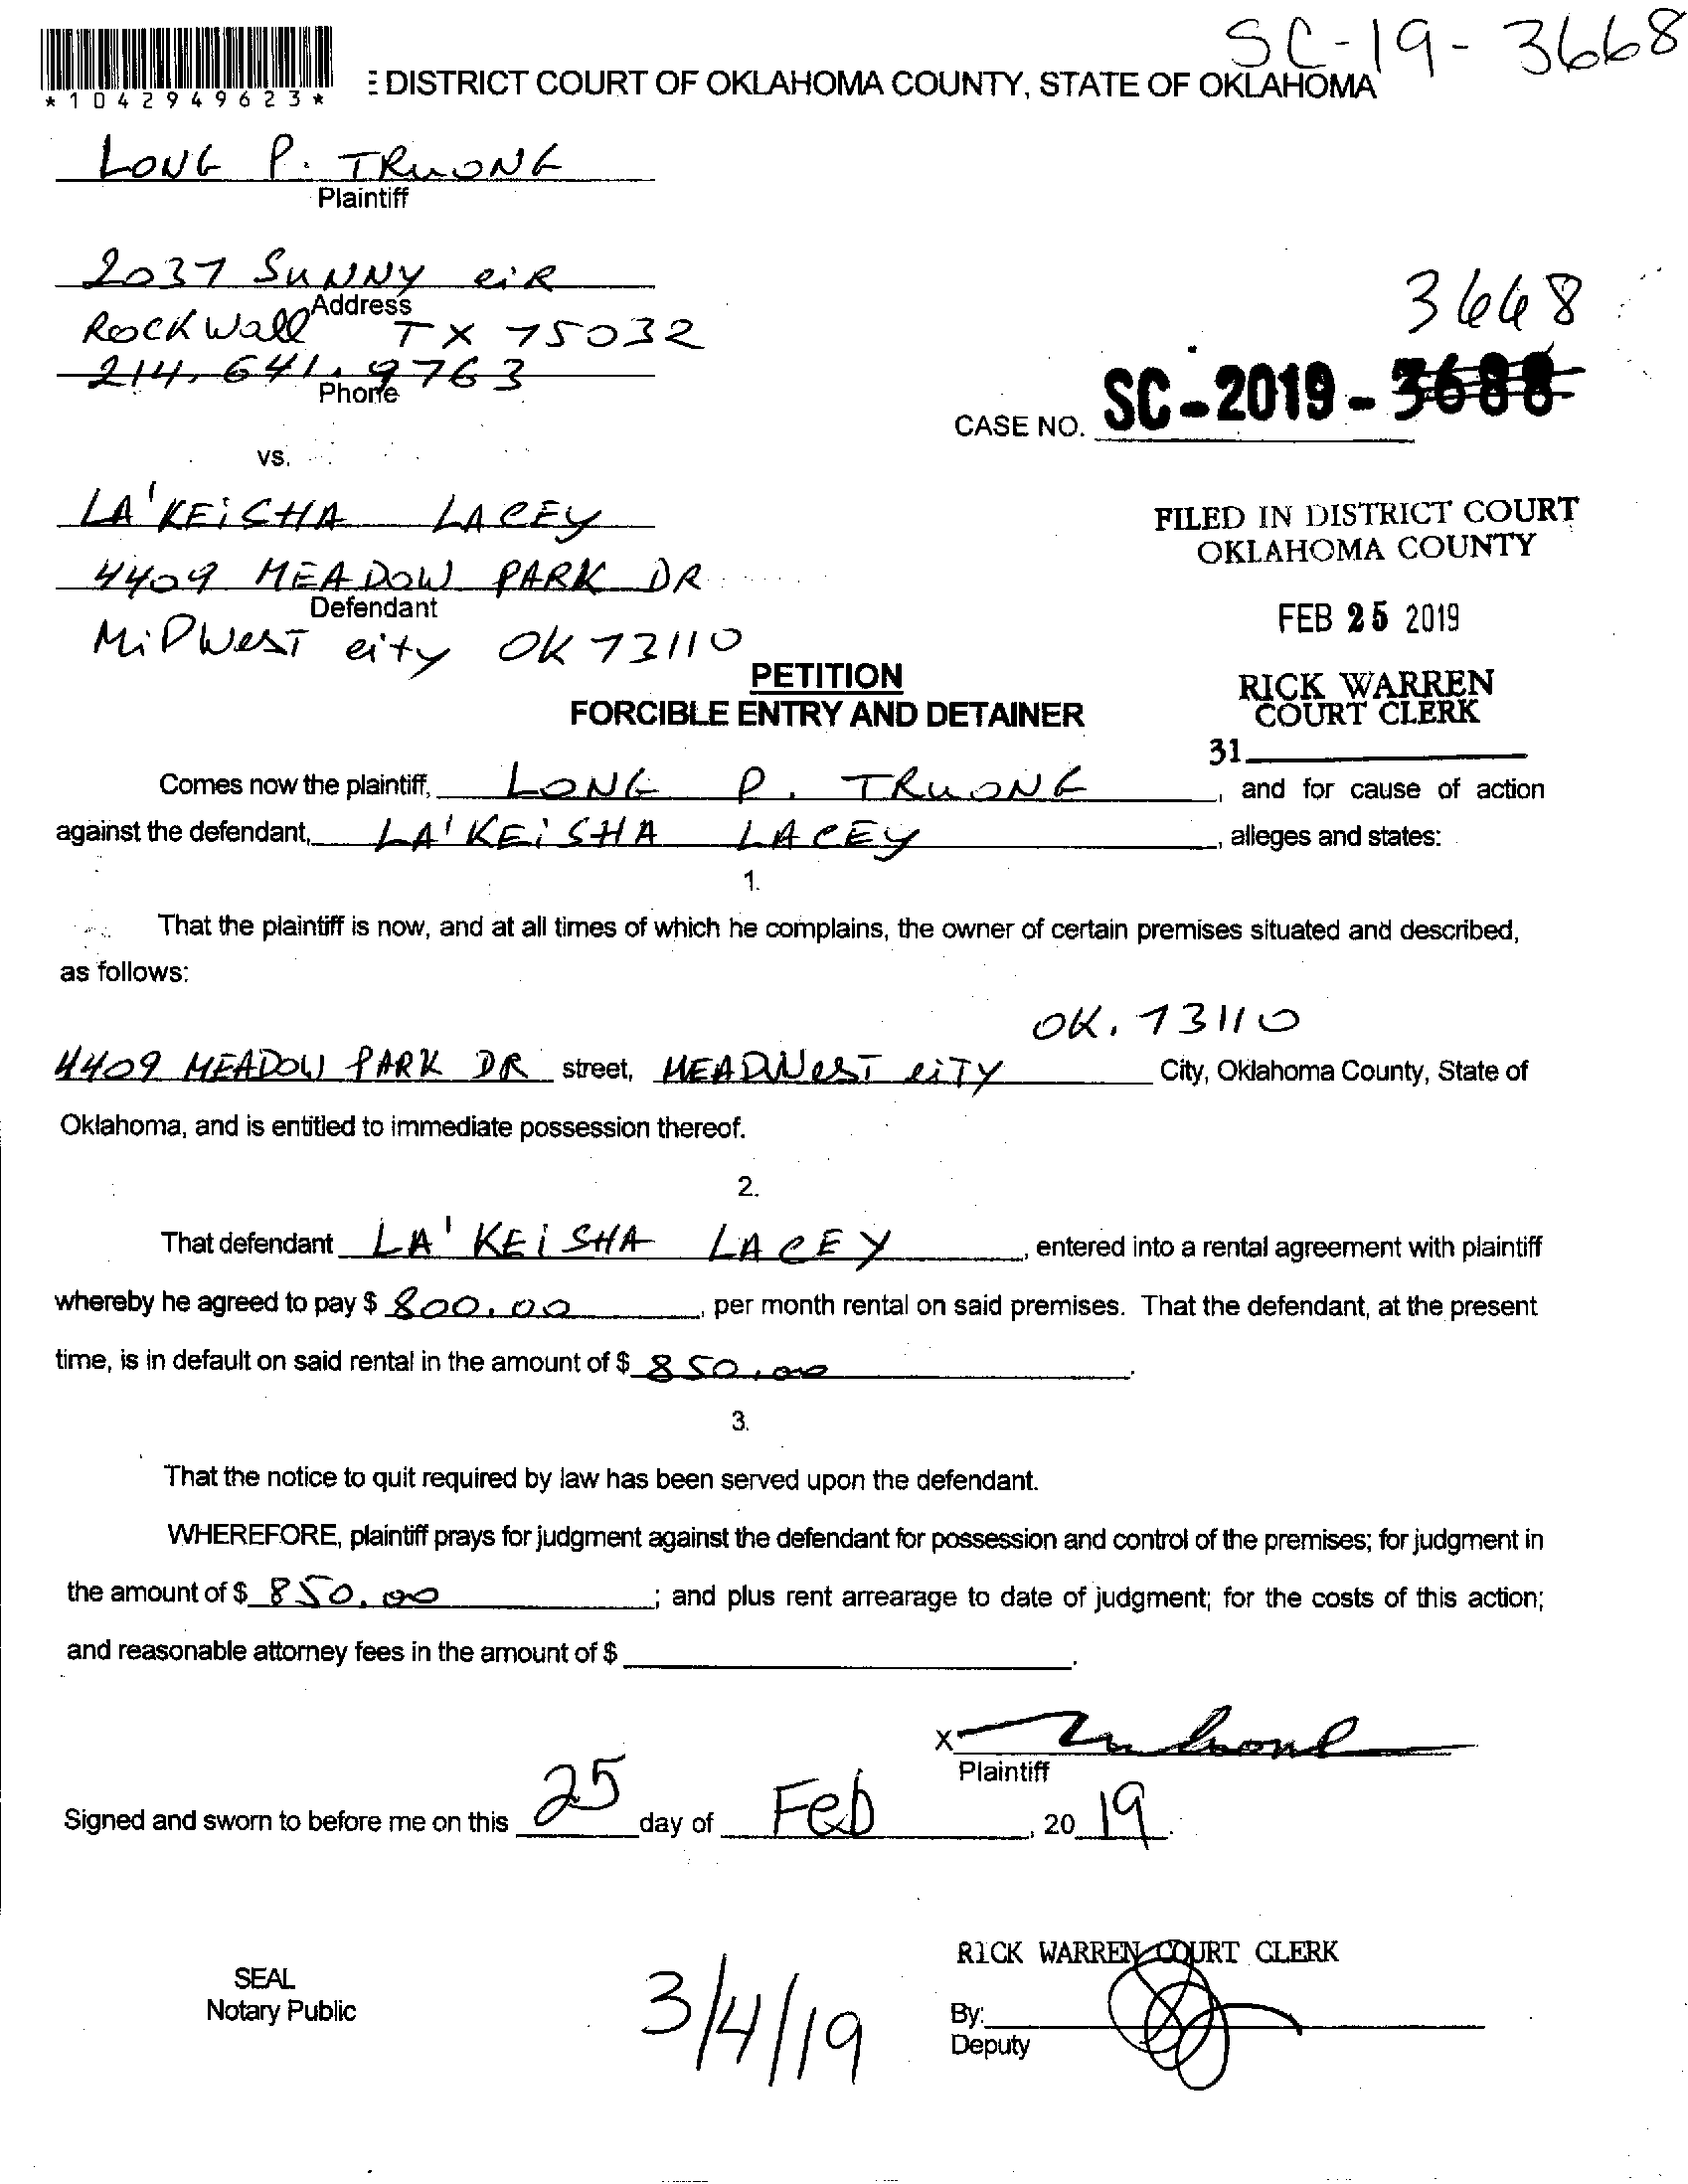 SC-19-3668
*1042949623*
E DISTRICT COURT OF OKLAHOMA COUNTY, STATE OF OKLAHOMA
LONG P. TRUONG
Plaintiff
2037 SUNNY CIR
Address
ROCKWALL TX 75032
214. 641. 9763
Phone
3668
CASE NO. SC-2019-3688
vs.
LA'KEISHA LACEY
4409 MEADOW PARK DR
Defendant
MIDWEST CITY OK 73110
FILED IN DISTRICT COURT
OKLAHOMA COUNTY
FEB 25 2019
RICK WARREN
COURT CLERK
31
PETITION
FORCIBLE ENTRY AND DETAINER
Comes now the plaintiff, LONG P. TRUONG, and for cause of action
against the defendant, LA'KEISHA LACEY, alleges and states:
1.
That the plaintiff is now, and at all times of which he complains, the owner of certain premises situated and described,
as follows:
OK. 73110
4409 MEADOW PARK DR street, MEADWEST CITY City, Oklahoma County, State of
Oklahoma, and is entitled to immediate possession thereof.
2.
That defendant LA'KEISHA LACEY, entered into a rental agreement with plaintiff
whereby he agreed to pay $ 800.00, per month rental on said premises. That the defendant, at the present
time, is in default on said rental in the amount of $ 850.00.
3.
That the notice to quit required by law has been served upon the defendant.
WHEREFORE, plaintiff prays for judgment against the defendant for possession and control of the premises; for judgment in
the amount of $ 850.00; and plus rent arrearage to date of judgment; for the costs of this action;
and reasonable attorney fees in the amount of $
X
Plaintiff
Signed and sworn to before me on this 25 day of Feb, 20 19.
RICK WARREN COURT CLERK
SEAL
Notary Public
3/4/19
By:
Deputy